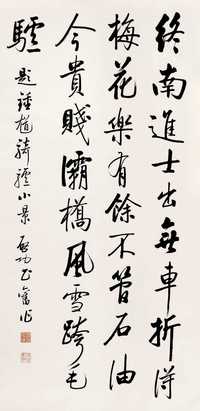 終南進士出無車折得
梅花樂有餘不管石油
今貴賤灞橋風雪跨毛
驢
題鍾馗騎驢小景 啟功 舊作